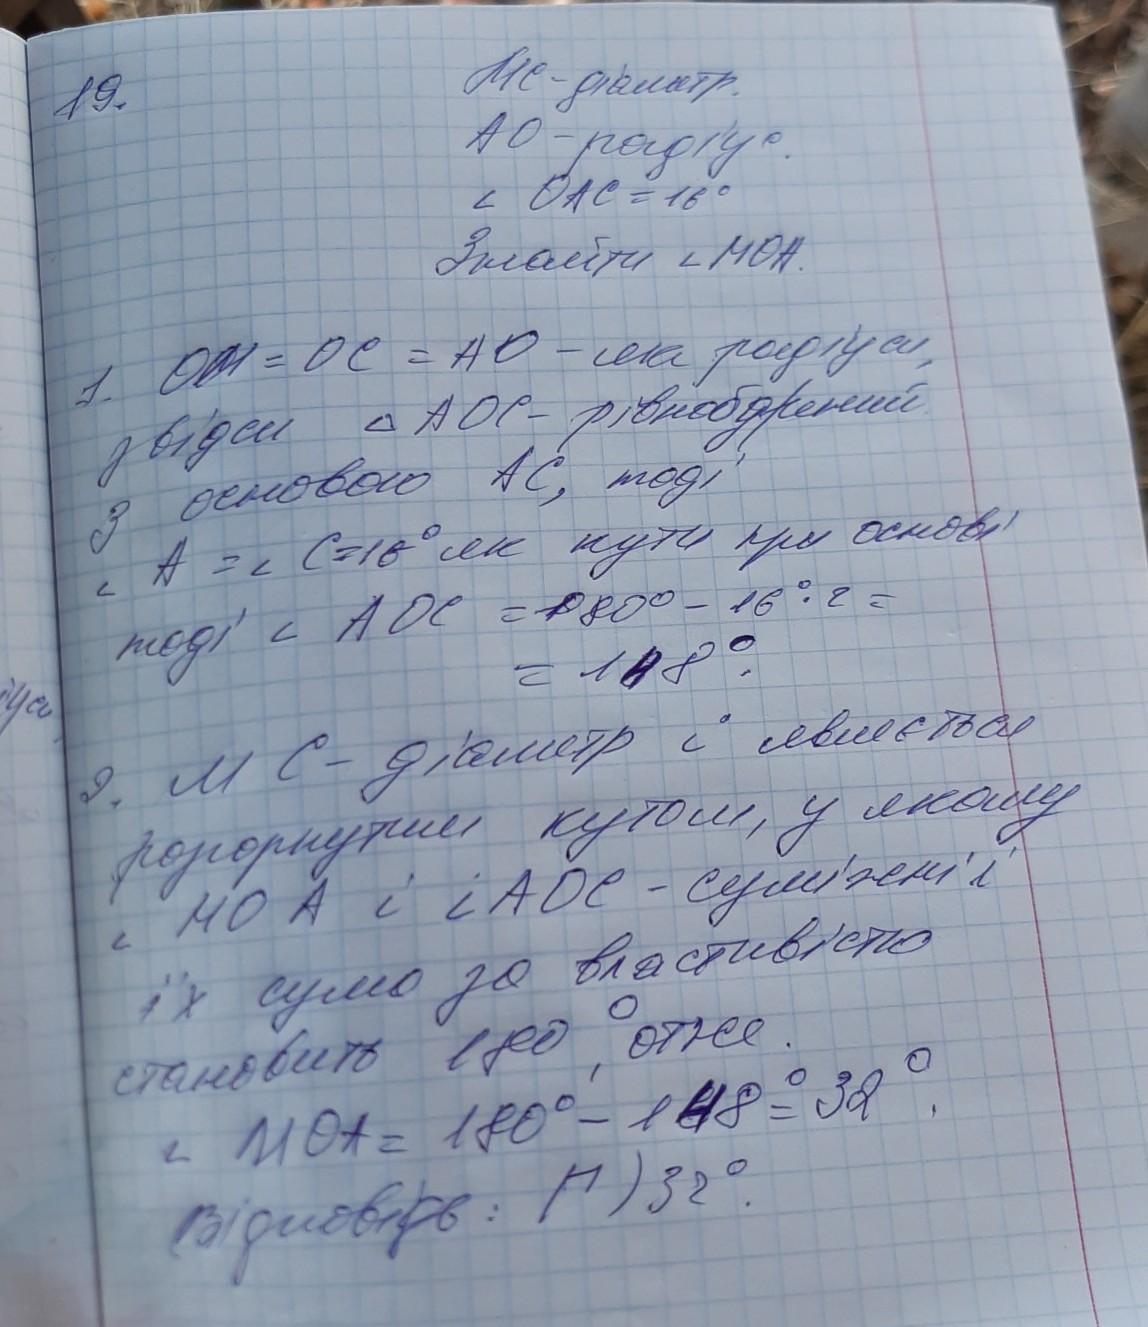 19.
МС - діаметр.
АО - радіус.
∠ ОАС = 16°
Знайти ∠ МОА.
1. ОМ = ОС = АО - як радіуси,
звідси △ АОС - рівнобдрений
з основою АС, тоді
∠ А = ∠ С = 16° як кути при основі
тоді ∠ АОС = 180° - 16° · 2 =
= 148°.
2. МС - діаметр і являється
розгорнутим кутом, у якому
∠ МОА і ∠ АОС - суміжні і
їх сума за властивістю
становить 180°, отже.
∠ МОА = 180° - 148° = 32°.
Відповідь: Г) 32°.